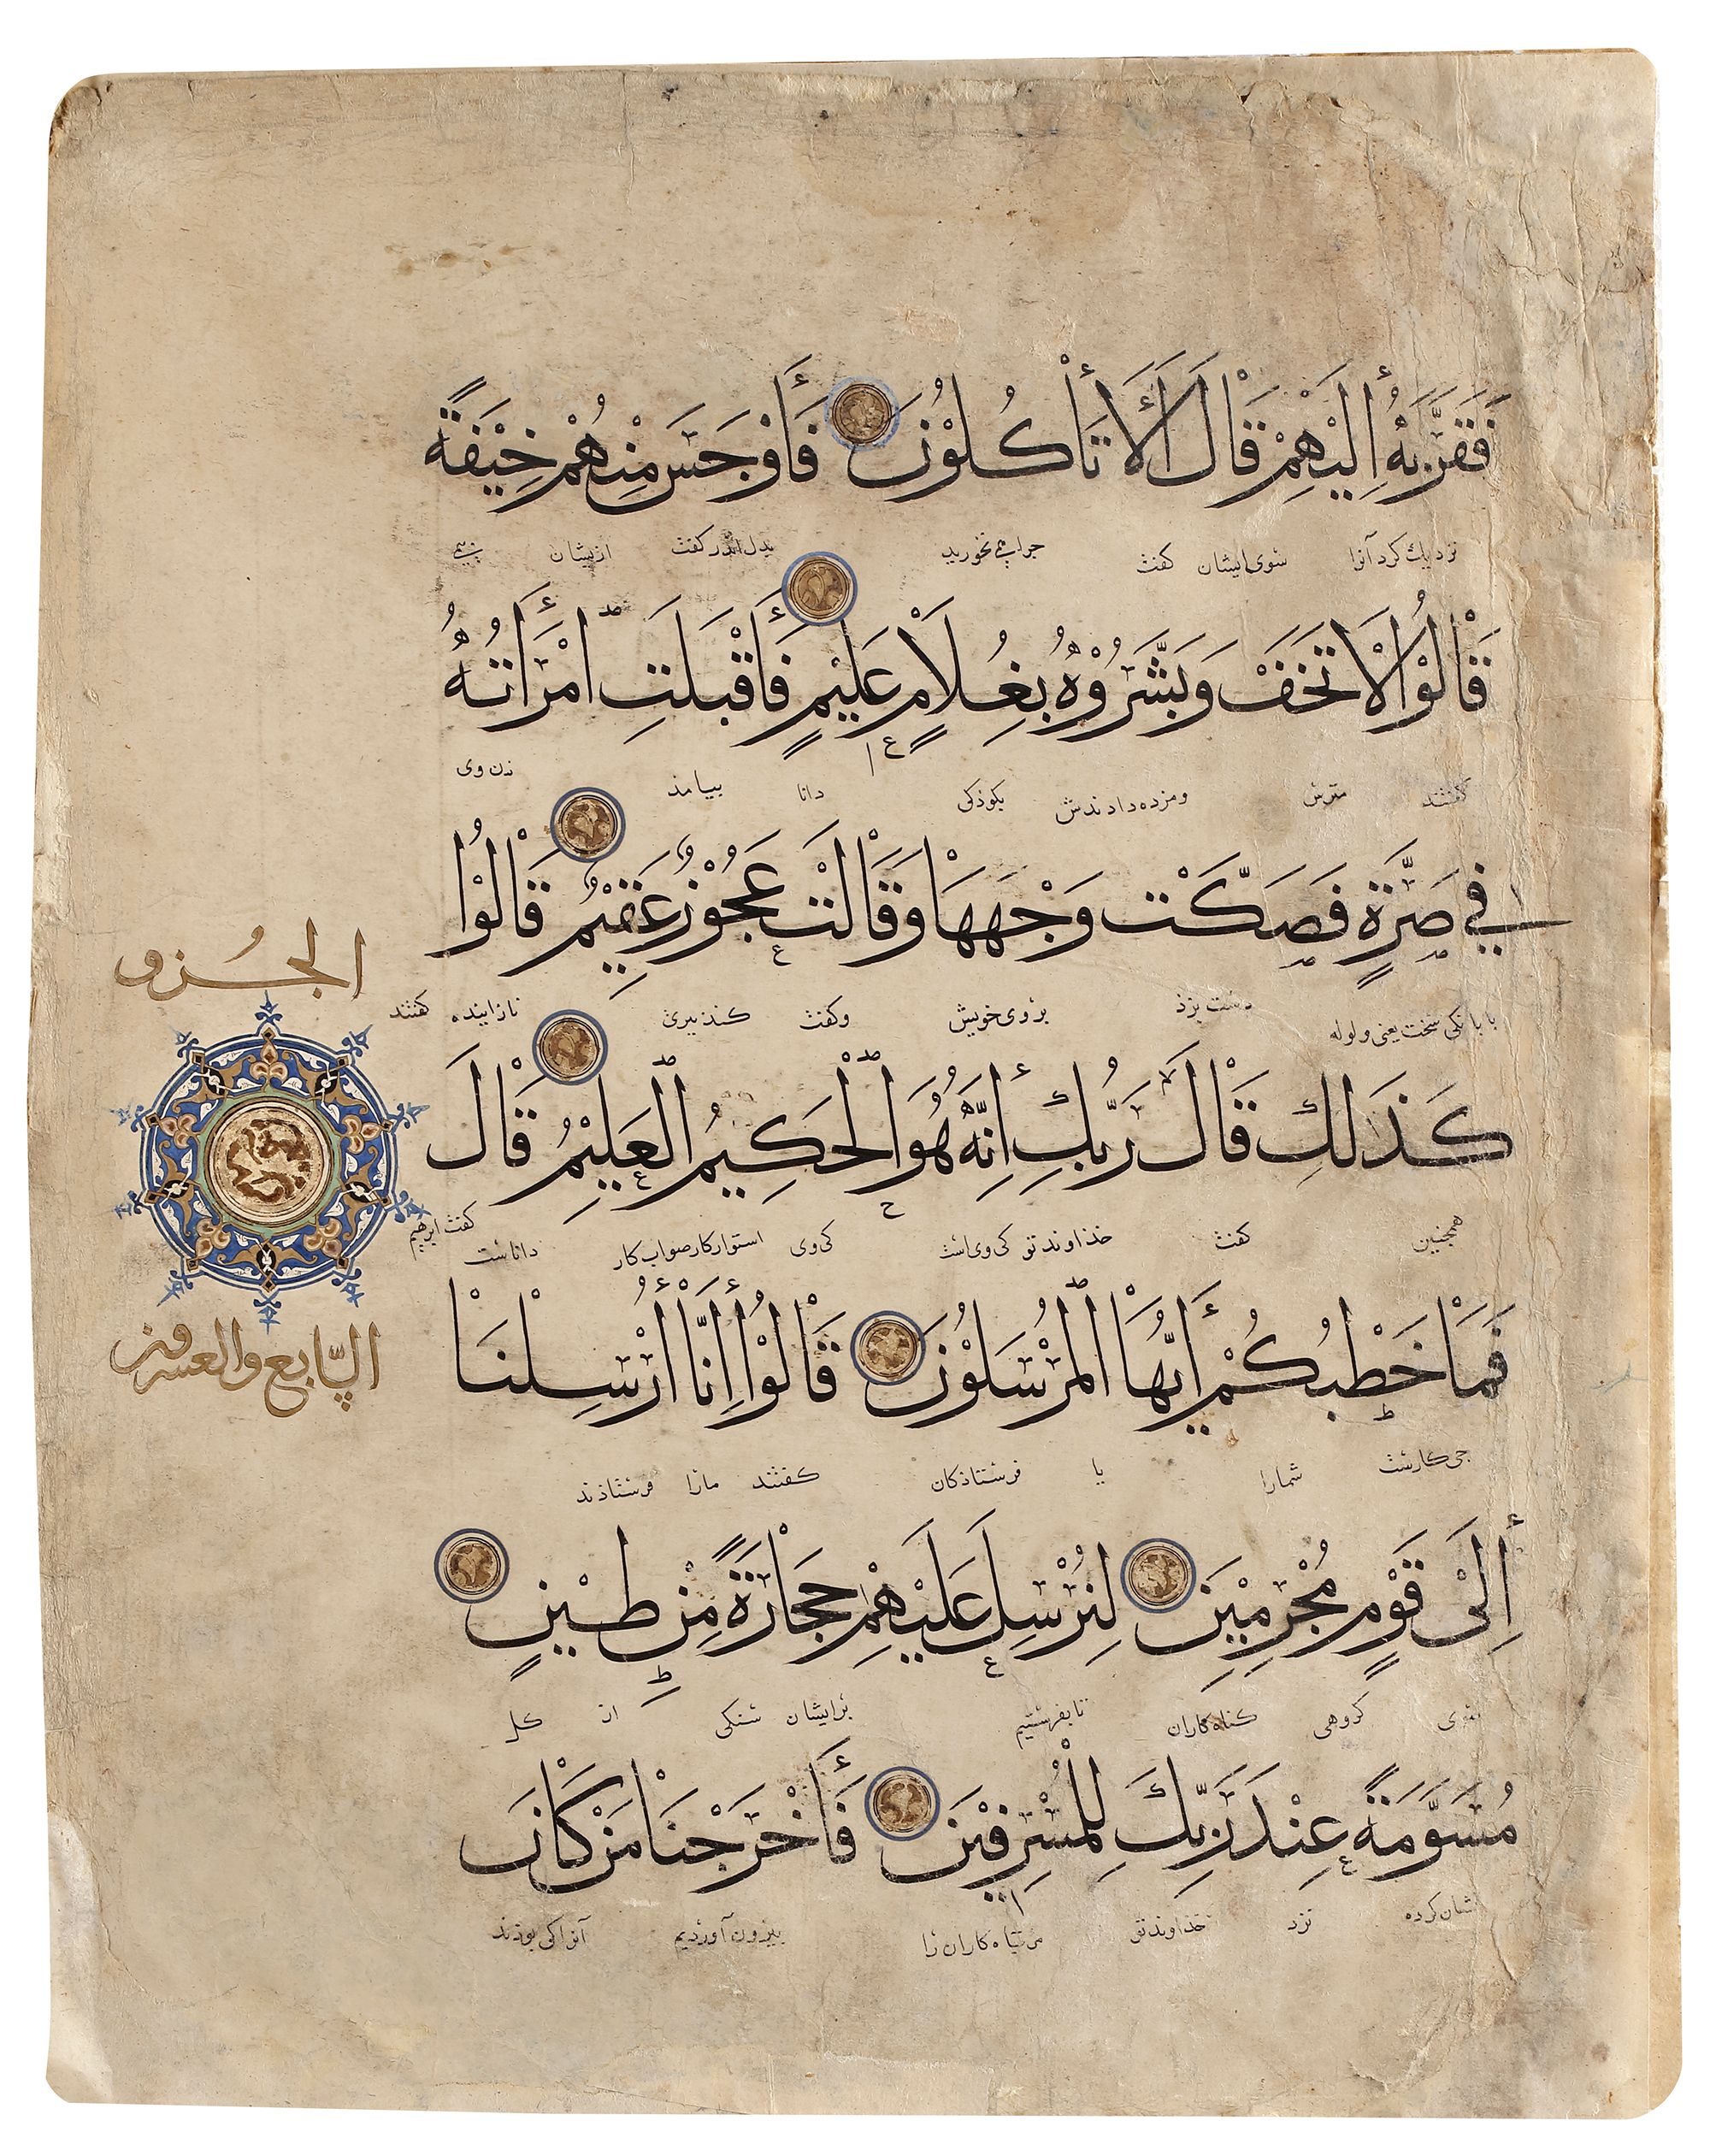 فَقَرَّبَهُ إِلَيْهِمْ قَالَ أَلَا تَأْكُلُوْنَ فَأَوْجَسَ مِنْهُمْ خِيْفَةً
نزديك كرد آنرا سوى ايشان كفت جرا مى نخوريد بدل اندر كفت ازيشان بيمى
قَالُوْا لَا تَخَفْ وَبَشَّرُوْهُ بِغُلَامٍ عَلِيْمٍ فَأَقْبَلَتِ امْرَأَتُهُ
كفتند مترس ومزده دادندش بكوذكى دانا بيامذ زن وى
فِي صَرَّةٍ فَصَكَّتْ وَجْهَهَا وَقَالَتْ عَجُوْزٌ عَقِيْمٌ قَالُوْا
با بانكى سخت يعنى ولوله دست بزذ بروى خويش وكفت كنذبيرى نازاينده كفتند
كَذَلِكِ قَالَ رَبُّكِ إِنَّهُ هُوَ الْحَكِيْمُ الْعَلِيْمُ قَالَ
همجنين كفت خذاوند تو كى وى است كى وى استوار كار صواب كار داناست كفت ابرهيم
فَمَا خَطْبُكُمْ أَيُّهَا الْمُرْسَلُوْنَ قَالُوْا إِنَّا أُرْسِلْنَا
جى كارست شمارا يا فرستاذكان كفتند مارا فرستاذند
إِلَى قَوْمٍ مُجْرِمِيْنَ لِنُرْسِلَ عَلَيْهِمْ حِجَارَةً مِنْ طِيْنٍ
سوى كروهى كناه كاران تا بفرستيم برايشان سنكى از كل
مُسَوَّمَةً عِنْدَ رَبِّكَ لِلْمُسْرِفِيْنَ فَأَخْرَجْنَا مَنْ كَانَ
نشان كرده نزد خذاوند تو مر تباه كاران را بيرون آورديم آنرا كى بوذند
الجزو
السابع والعشرون